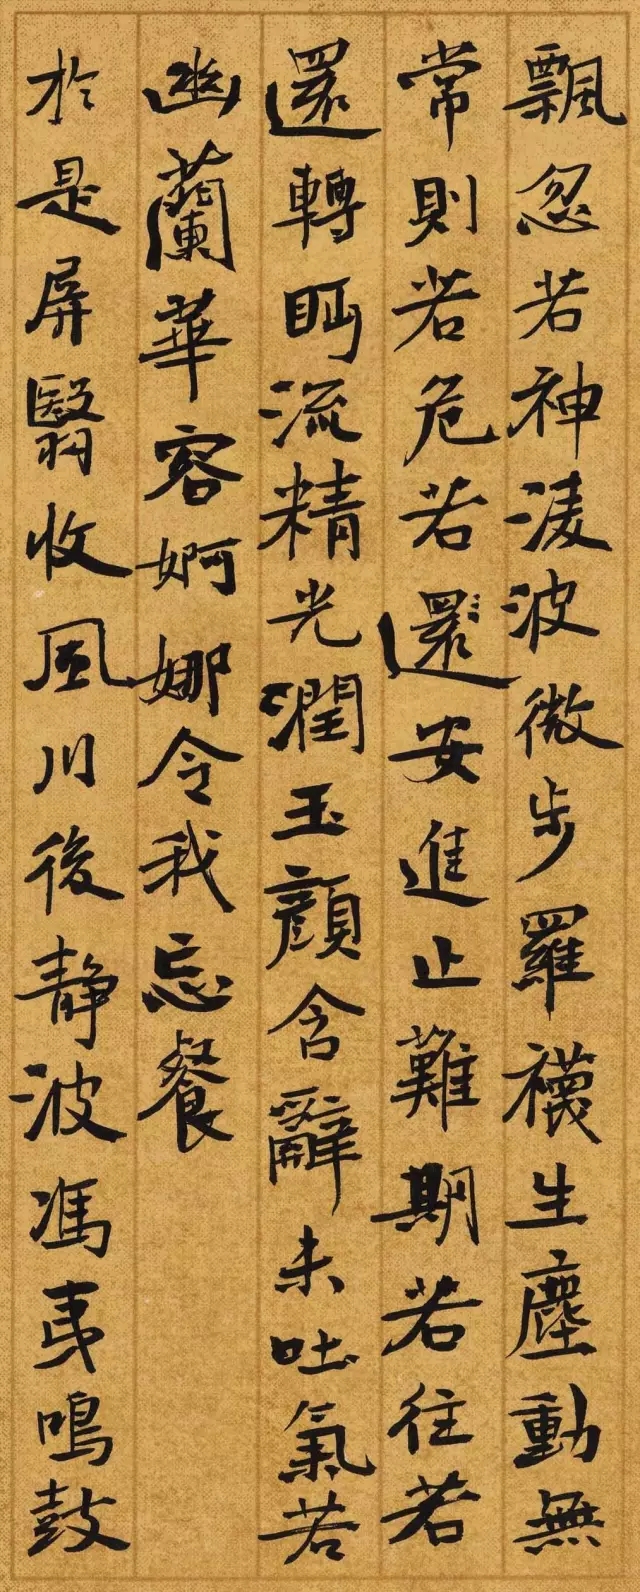 飄忽若神淩波微步羅襪生塵動無
常則若危若還安進止難期若往若
還轉眄流精光潤玉顏含辭未吐氣若
幽蘭華容婀娜令我忘餐
於是屏翳收風川後静波馮夷鳴鼓